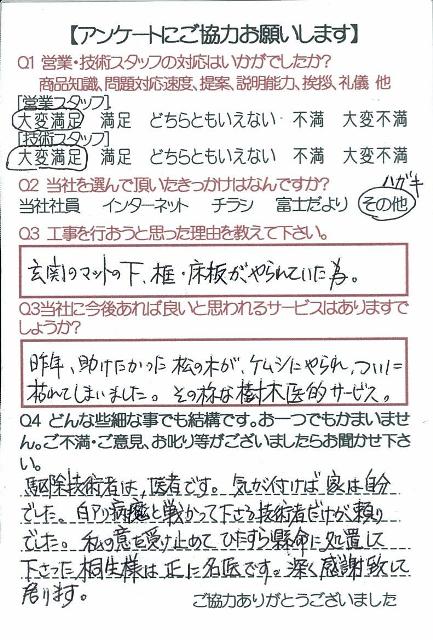 【アンケートにご協力お願いします】
Q1 営業・技術スタッフの対応はいかがでしたか?
商品知識、問題対応速度、提案、説明能力、挨拶、礼儀 他
[営業スタッフ]
大変満足 満足 どちらともいえない 不満 大変不満
[技術スタッフ]
大変満足 満足 どちらともいえない 不満 大変不満
Q2 当社を選んで頂いたきっかけはなんですか?
ハガキ
当社社員 インターネット チラシ 富士だより その他
Q3 工事を行おうと思った理由を教えて下さい。
玄関のマットの下、框・床板がやられていた為。
Q3当社に今後あれば良いと思われるサービスはありますで
しょうか?
昨年、助けたかった松の木が、ケムシにやられ、ついに
枯れてしまいました。その様な樹木医的サービス。
Q4 どんな些細な事でも結構です。お一つでもかまいませ
ん。ご不満・ご意見、お叱り等がございましたらお聞かせ下さ
い。
駆除技術者は、医者です。気が付けば家は自分
でした。白アリ病魔と戦かって下さる技術者だけが頼り
でした。私の意を受け止めてひたすら懸命に処置して
下さった桐生様は正に名医です。深く感謝致して
居ります。
ご協力ありがとうございました